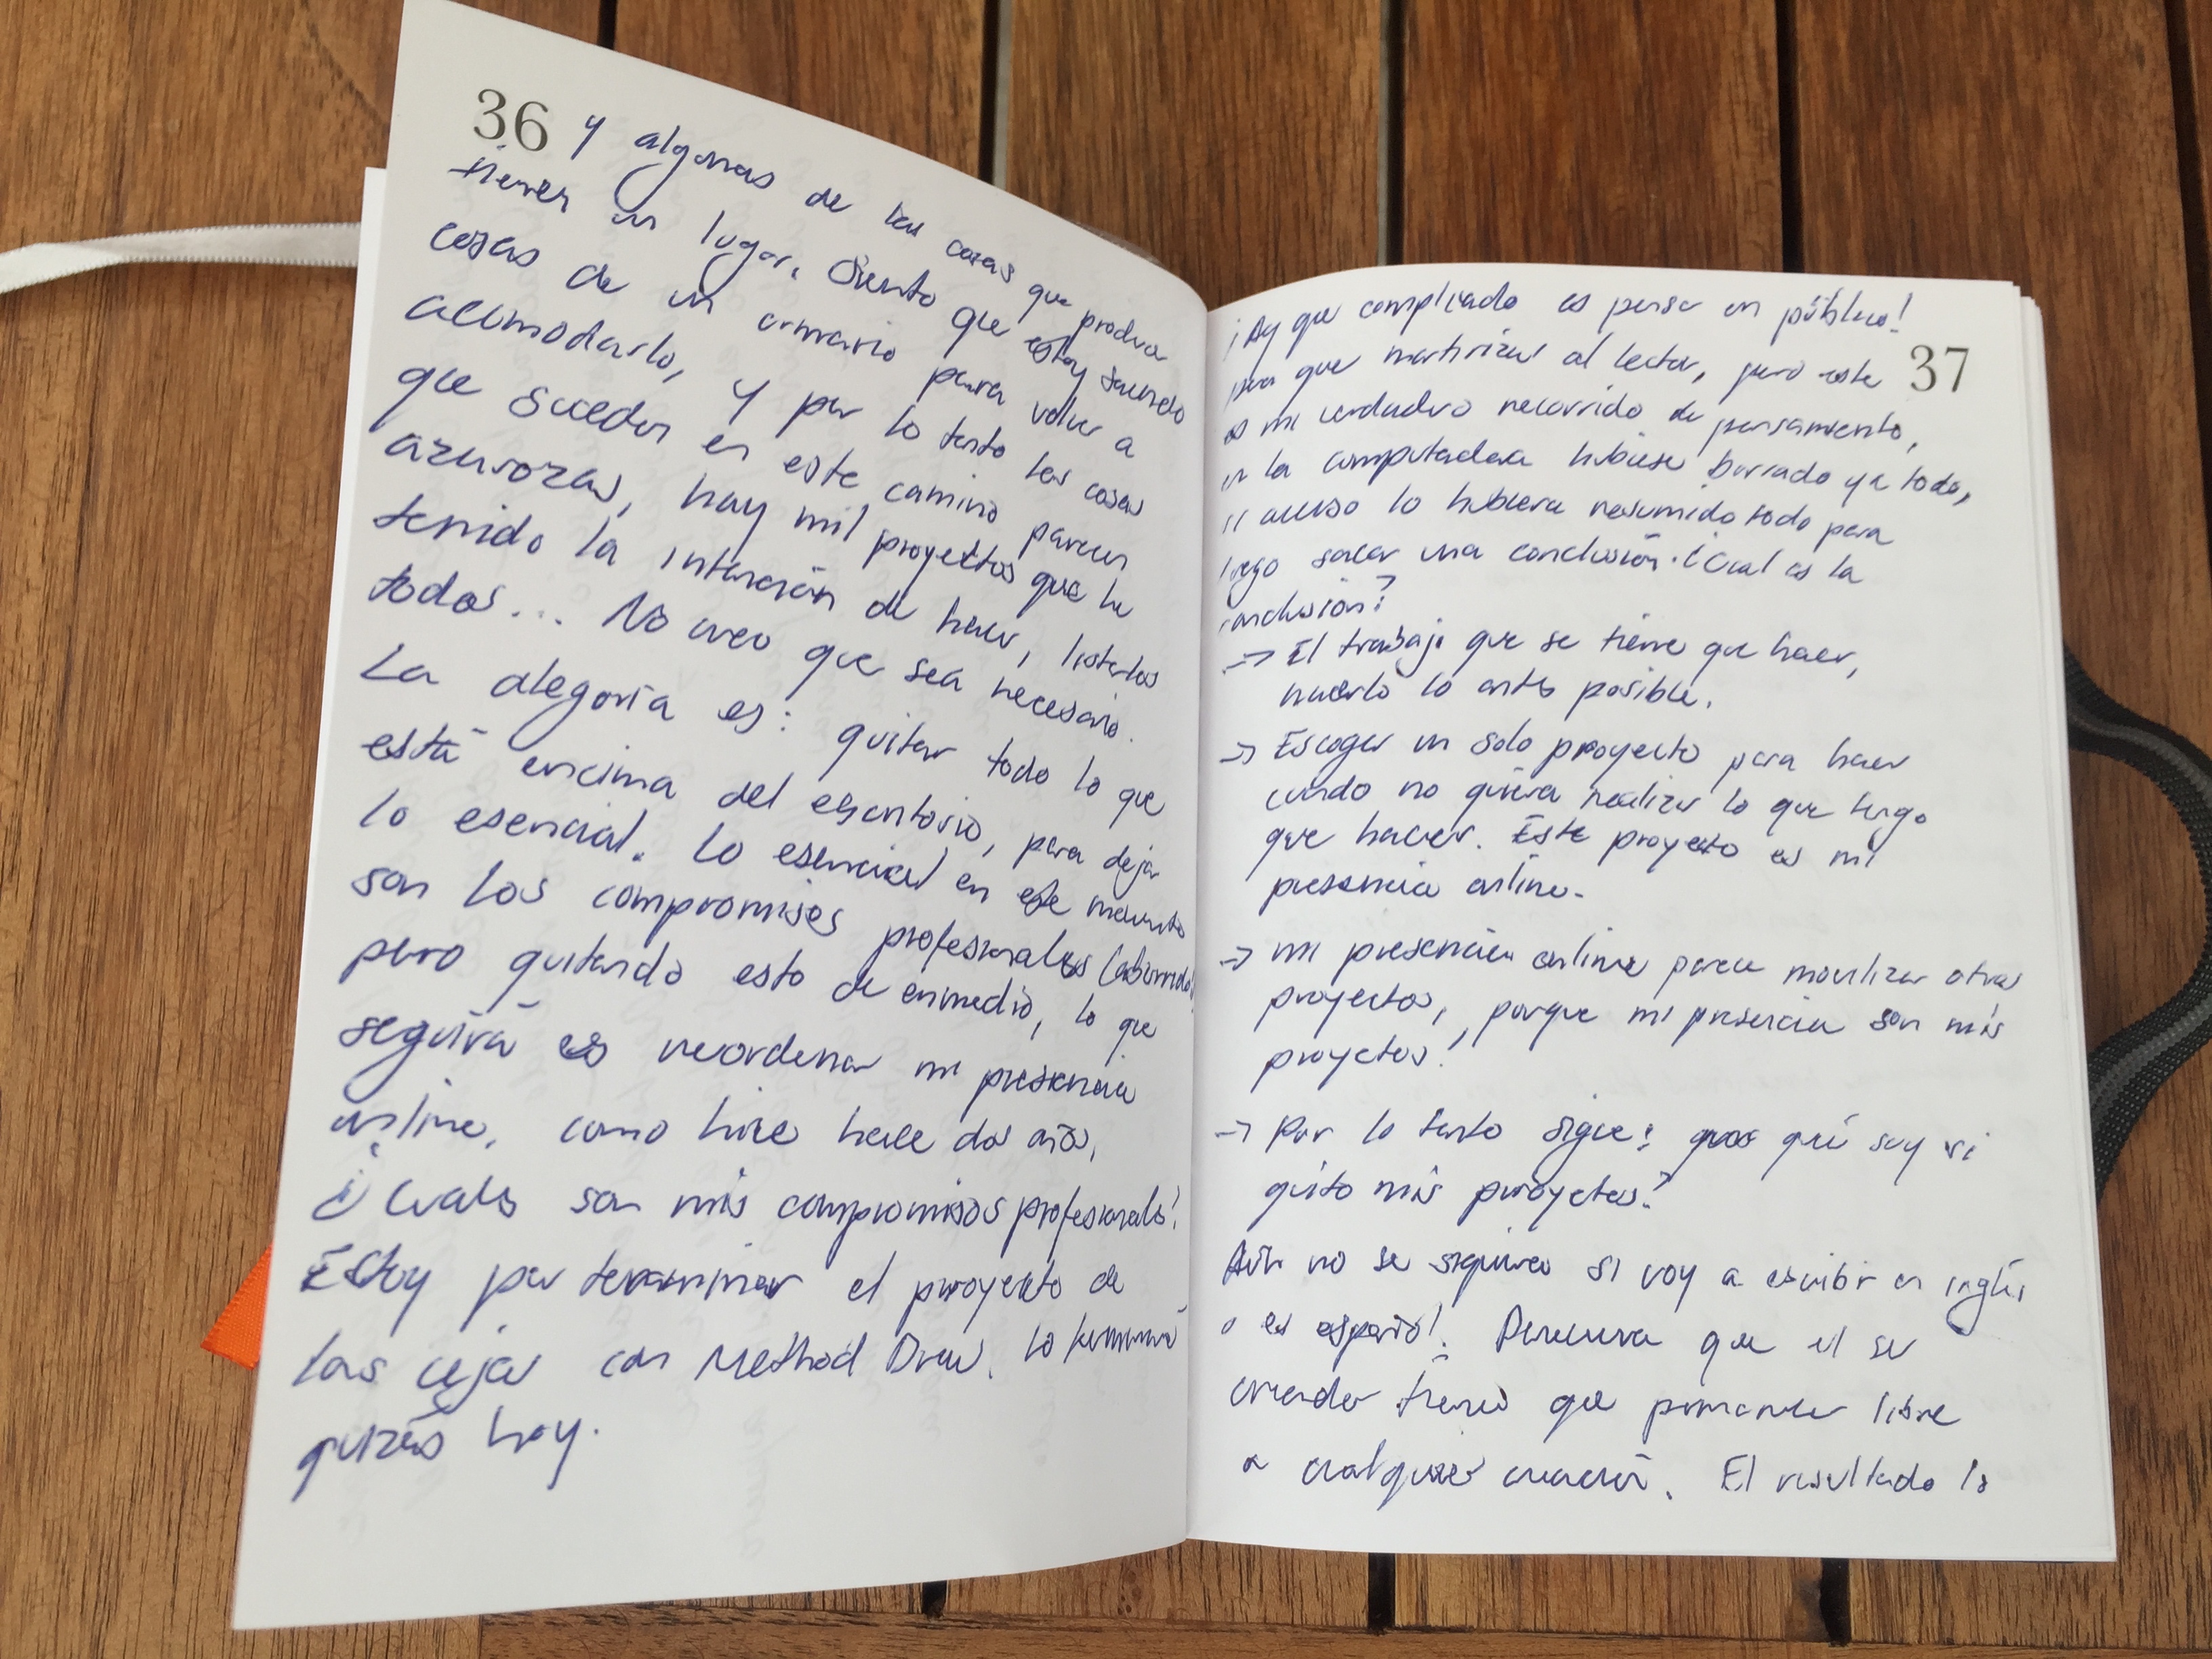 36
y algunas de las cosas que produzco
tienen un lugar. Siento que estoy sacando
cosas de un armario para volver a
acomodarlo, y por lo tanto las cosas
que suceden en este camino parecen
azarozas, hay mil proyectos que he
tenido la intención de hacer, listarlos
todos... No creo que sea necesario.
La alegoría es: quitar todo lo que
está encima del escritorio, para dejar
lo esencial. Lo esencial en este momento
son los compromisos profesionales (aburrido)
pero quitando esto de enmedio, lo que
seguirá es reordenar mi presencia
online, como hice hace dos años,
¿Cuales son mis compromisos profesionales?
Estoy por terminar el proyecto de
las cejas con Method Draw. Lo terminaré
quizás hoy.
37
¡Ay que complicado es pensar en público!
para que martirizar al lector, pero este
es mi verdadero recorrido de pensamiento,
en la computadora hubiese borrado ya todo,
si acaso lo hubiera resumido todo para
luego sacar una conclusión. ¿Cual es la
conclusión?
→ El trabajo que se tiene que hacer,
hacerlo lo antes posible.
→ Escoger un solo proyecto para hacer
cuando no quiera realizar lo que tengo
que hacer. Este proyecto es mi
presencia online.
→ mi presencia online parece movilizar otros
proyectos, porque mi presencia son mis
proyectos!
→ Por lo tanto sigue: qué soy si
quito mis proyectos?
Aún no se siquiera si voy a escribir en inglés
o en español! que el ser
creador tiene que permanecer libre
a cualquier creación. El resultado lo